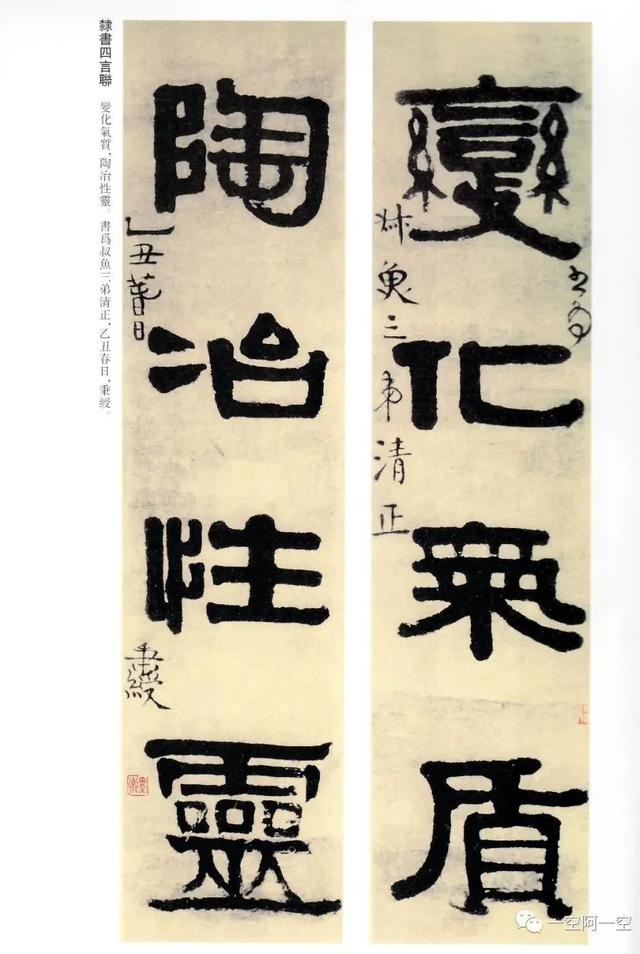 變化氣質
書為
叔魚三弟清正
陶冶性靈
乙丑萅日
秉綬
隸書四言聯 變化氣質，陶冶性靈。書爲叔魚三弟清正，乙丑春日，秉綬。
一空阿一空